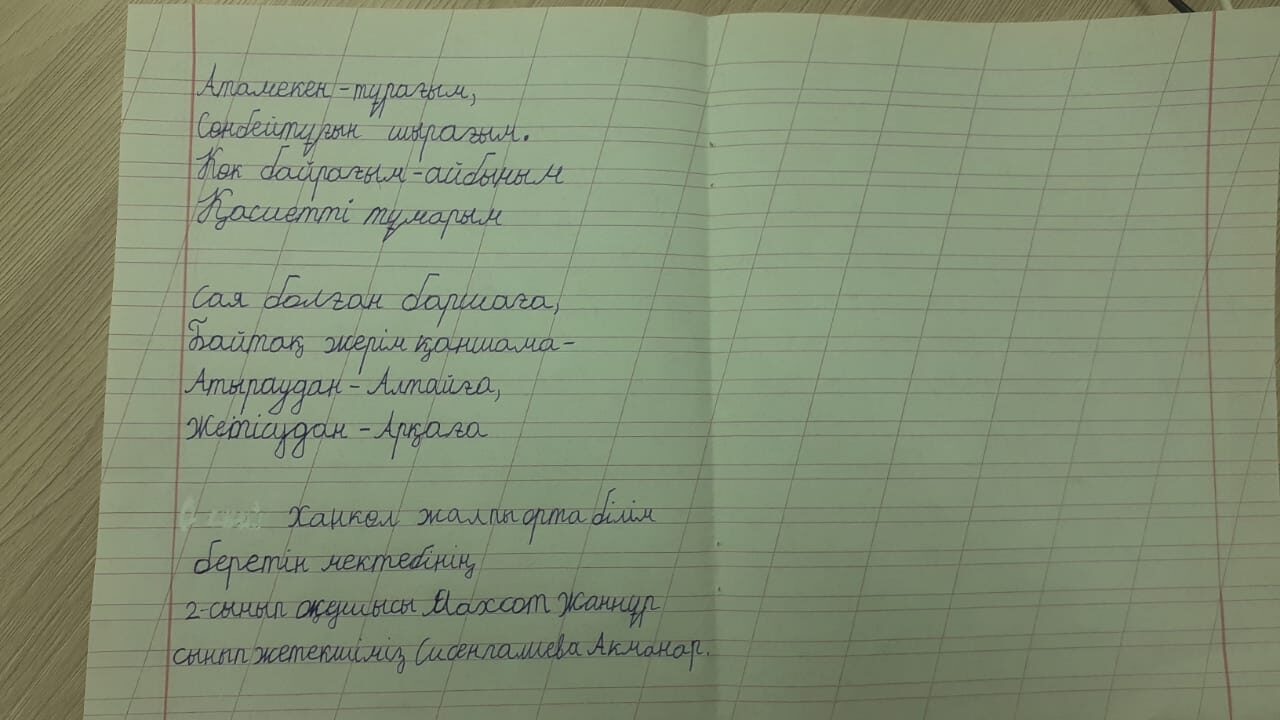 Атамекен - тұрағым,
Сөнбейтұғын шырағым.
Көк байрағым - айбыным
Қасиетті тұмарым
Сая болған баршаға,
Байтақ жерім қаншама -
Атыраудан - Алтайға,
Жетісудан - Арқаға
Ханкөл жалпы орта білім
беретін мектебінің
2-сынып оқушысы Махсот Жаннұр
сынып жетекшіміз Сисенғалиева Акманар.